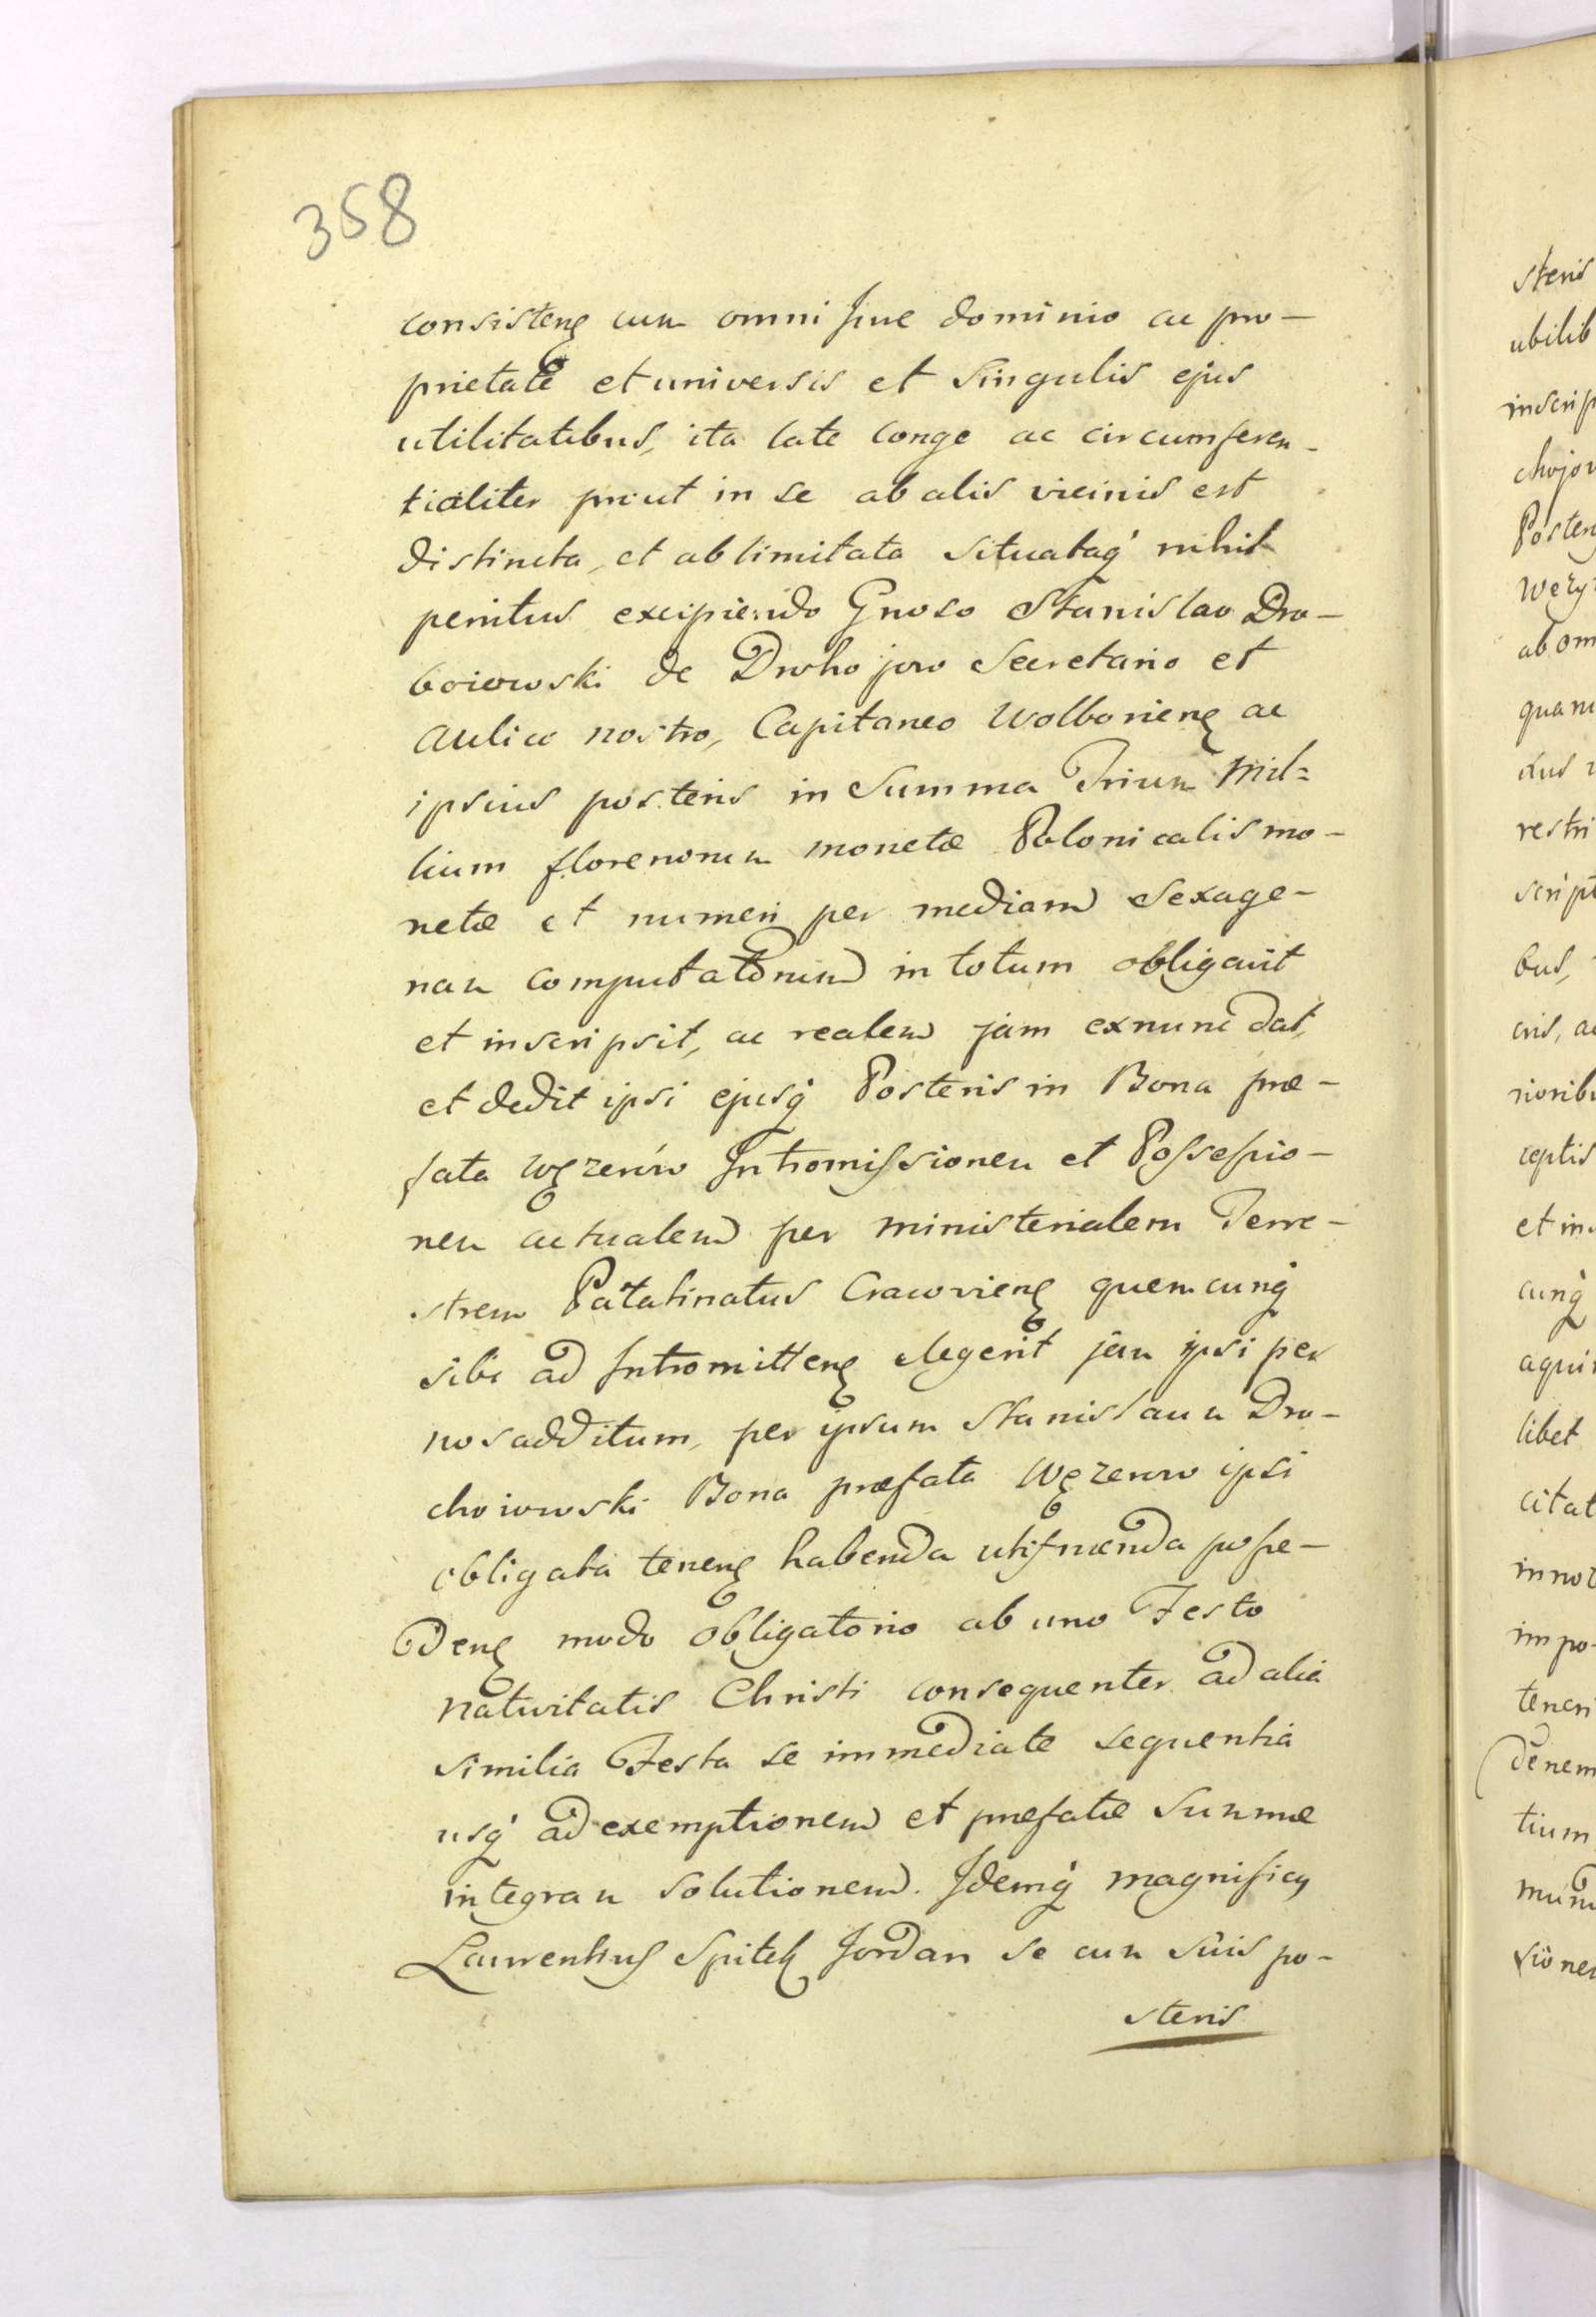 358
consisteñ cum omni Jure dominio ac pro-
prietate et universis et singulis ejus
utilitatibus, ita late longe ac circumferen-
tialiter prout in se ab aliis vicinis est
distincta, et ablimitata situataq́ nihil
penitus excipiendo Gnoso Stanislao Dro-
boiowski de Drohojow Secretario et
Aulico nostro, Capitaneo Wolborieñ ac
ipsius posteris in Summa Trium Mil=
lium florenorum monetæ Polonicalis mo-
netæ et numeri per mediam Sexage-
nam computatorum in totum obligavit
et inscripsit, ac realem jam exnunc dat,
et dedit ipsi ejusq́ Posteris in Bona præ-
fata Węzerów Intromissionem et Possessio-
nem actualem per ministerialem Terre-
strem Palatinatus Cracovieñ quemcunq́
sibi ad Intromitteñ elegerit jam ipsi per
nos additum, per ipsum Stanislaum Dro-
choiowski Bona præfata Węzerow ipsi
obligata teneñ habenda utifruenda posse-
deñ modo obligatorio ab uno Festo
nativitatis Christi consequenter ad alia
similia Festa se immediate sequentia
usq́ ad exemptionem et præfatæ Summæ
integram solutionem. Idemq́ magnificus
Laurentius Spitek Jordan se cum suis po-
steris
steris
ubilib
inscrip
chojow
Poster
Węży
ab om
quam
restri
script
bus,
cris, ac
rioribu
ceptis
et in
cunq́
aqui
libet
citat
innov
impo-
teneri
denem
tium
sione